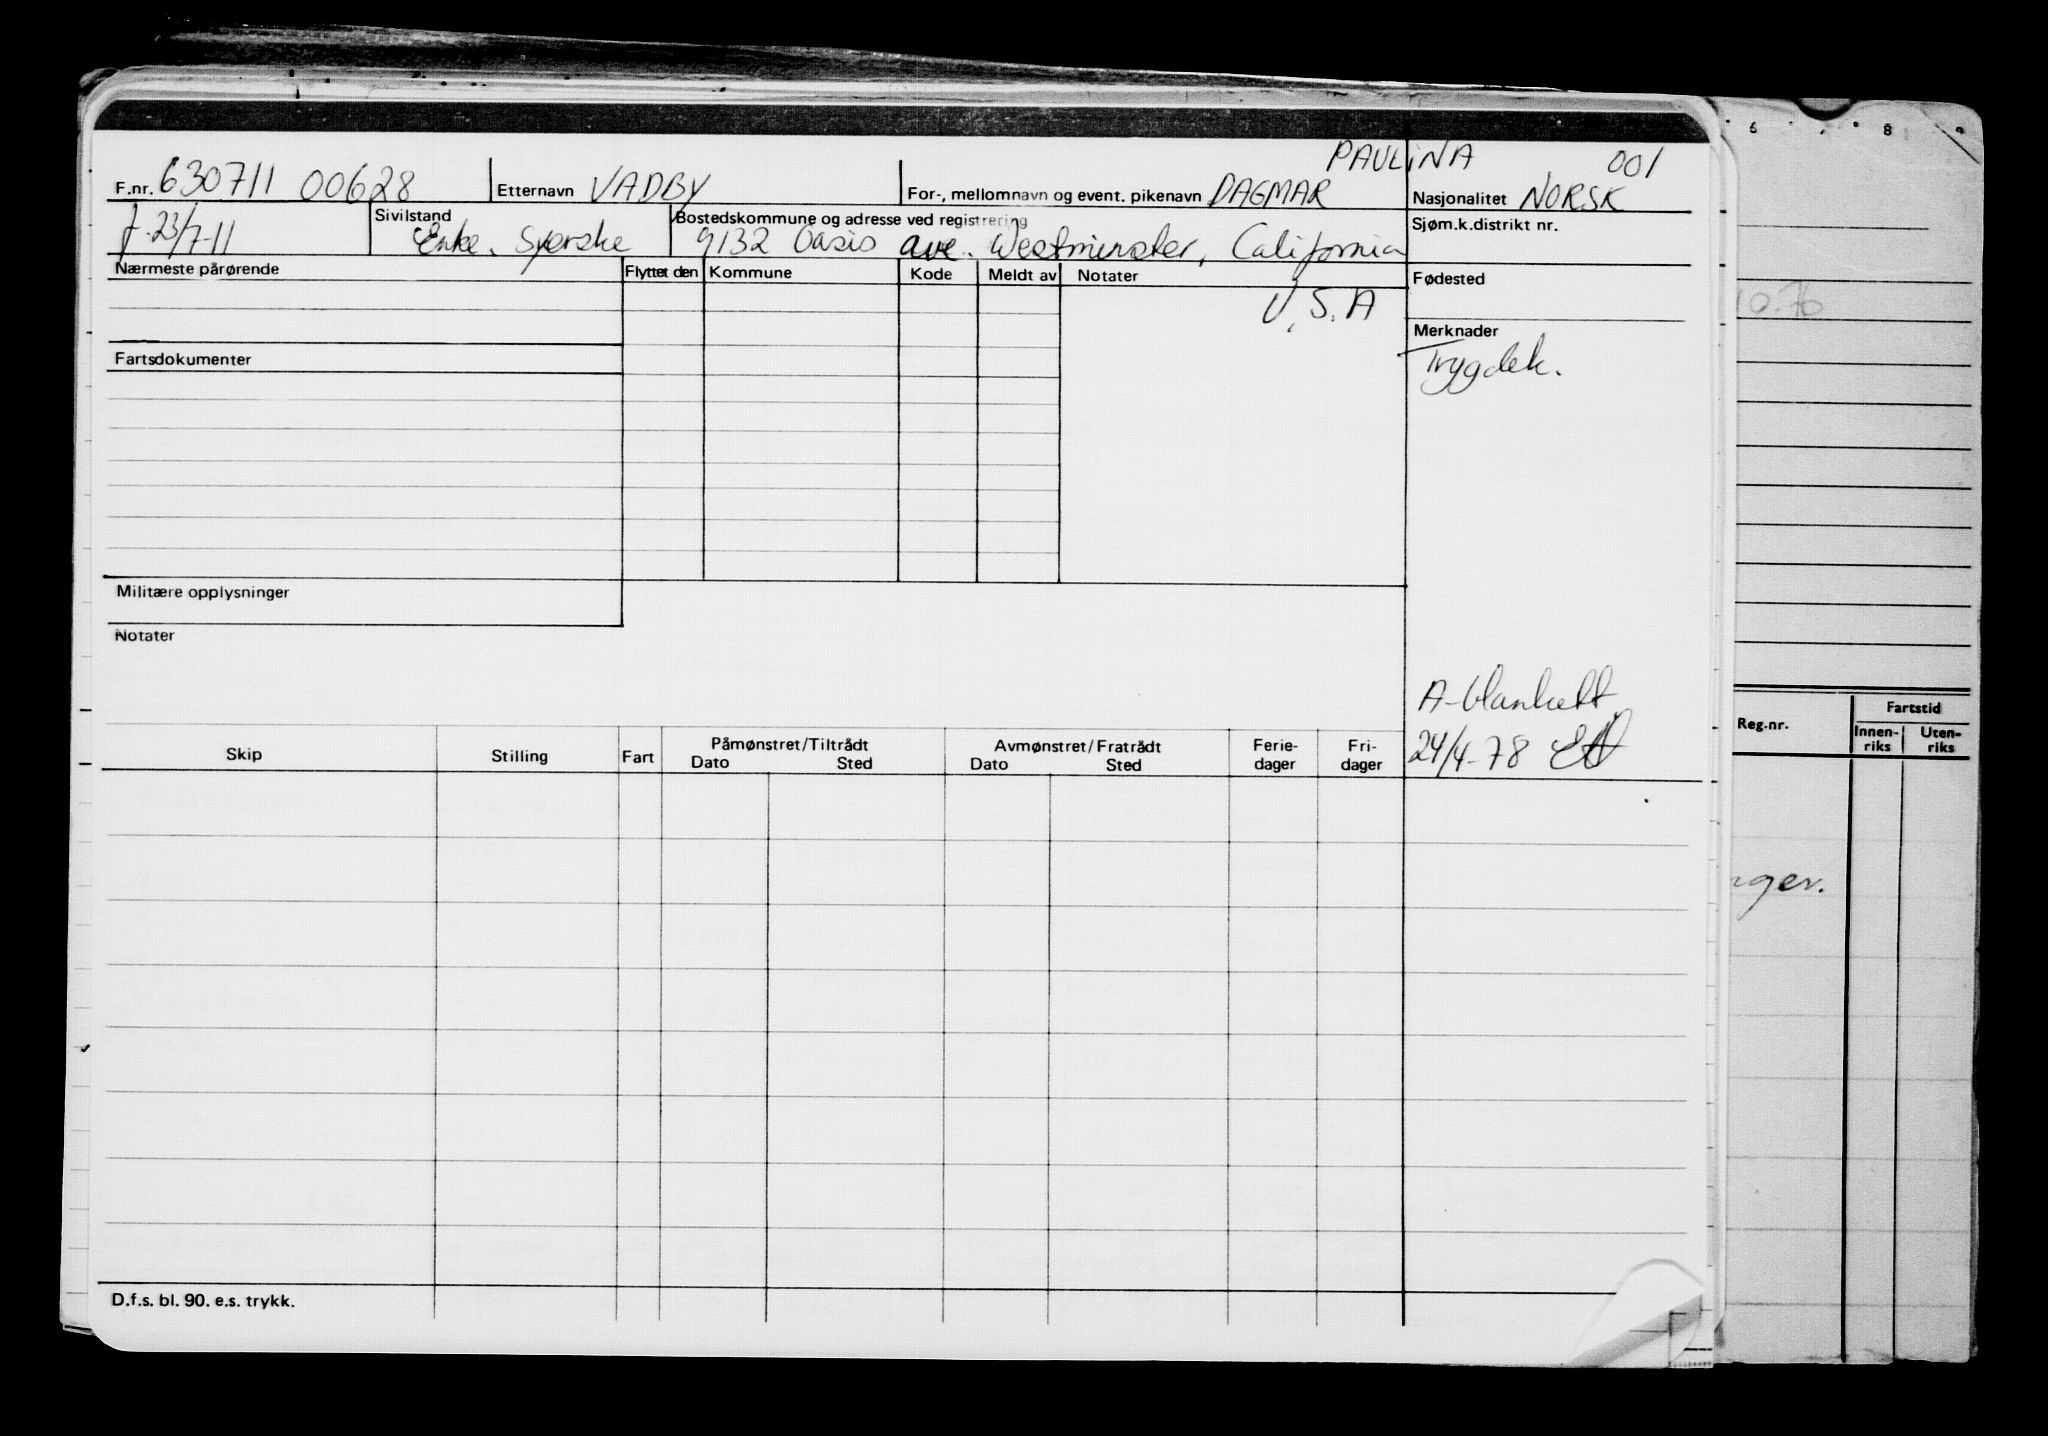 PAULINA 001
F.nr. 630711 00628 Etternavn VADBY For-, mellomnavn og event. pikenavn DAGMAR Nasjonalitet NORSK
f. 23/7-11 Sivilstand Enke. Syerske Bostedskommune og adresse ved registrering 9132 Oasis ave. Westminster, California Sjøm.k.distrikt nr.
Nærmeste pårørende Flyttet den Kommune Kode Meldt av Notater Fødested
U.S.A
10.70
Merknader
Fartsdokumenter Trygdek.
Militære opplysninger
Notater
A-blankett
24/4-78
Skip Stilling Fart Påmønstret/Tiltrådt Dato Sted Avmønstret/Fratrådt Dato Sted Ferie-dager Fri-dager
D.f.s. bl. 90. e.s. trykk.
6 8
Reg.nr. Fartstid
Innen-riks Uten-riks
nger.